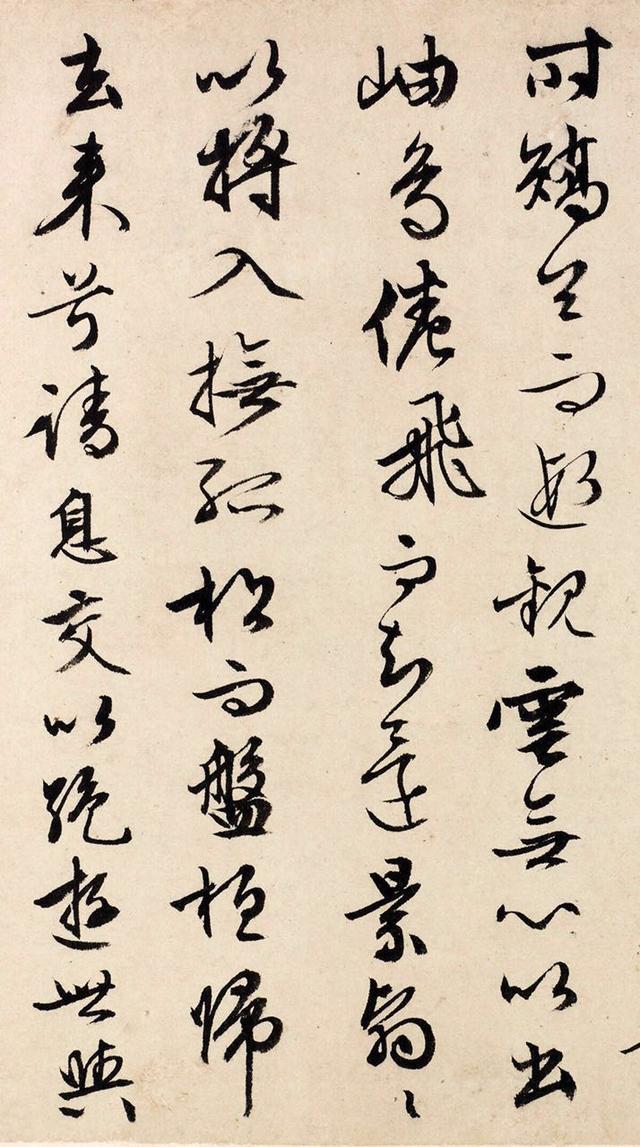 時矯首而遐觀雲無心以出
岫鳥倦飛而知還景翳〻
以將入撫孤松而盤桓歸
去來兮請息交以絶遊世與